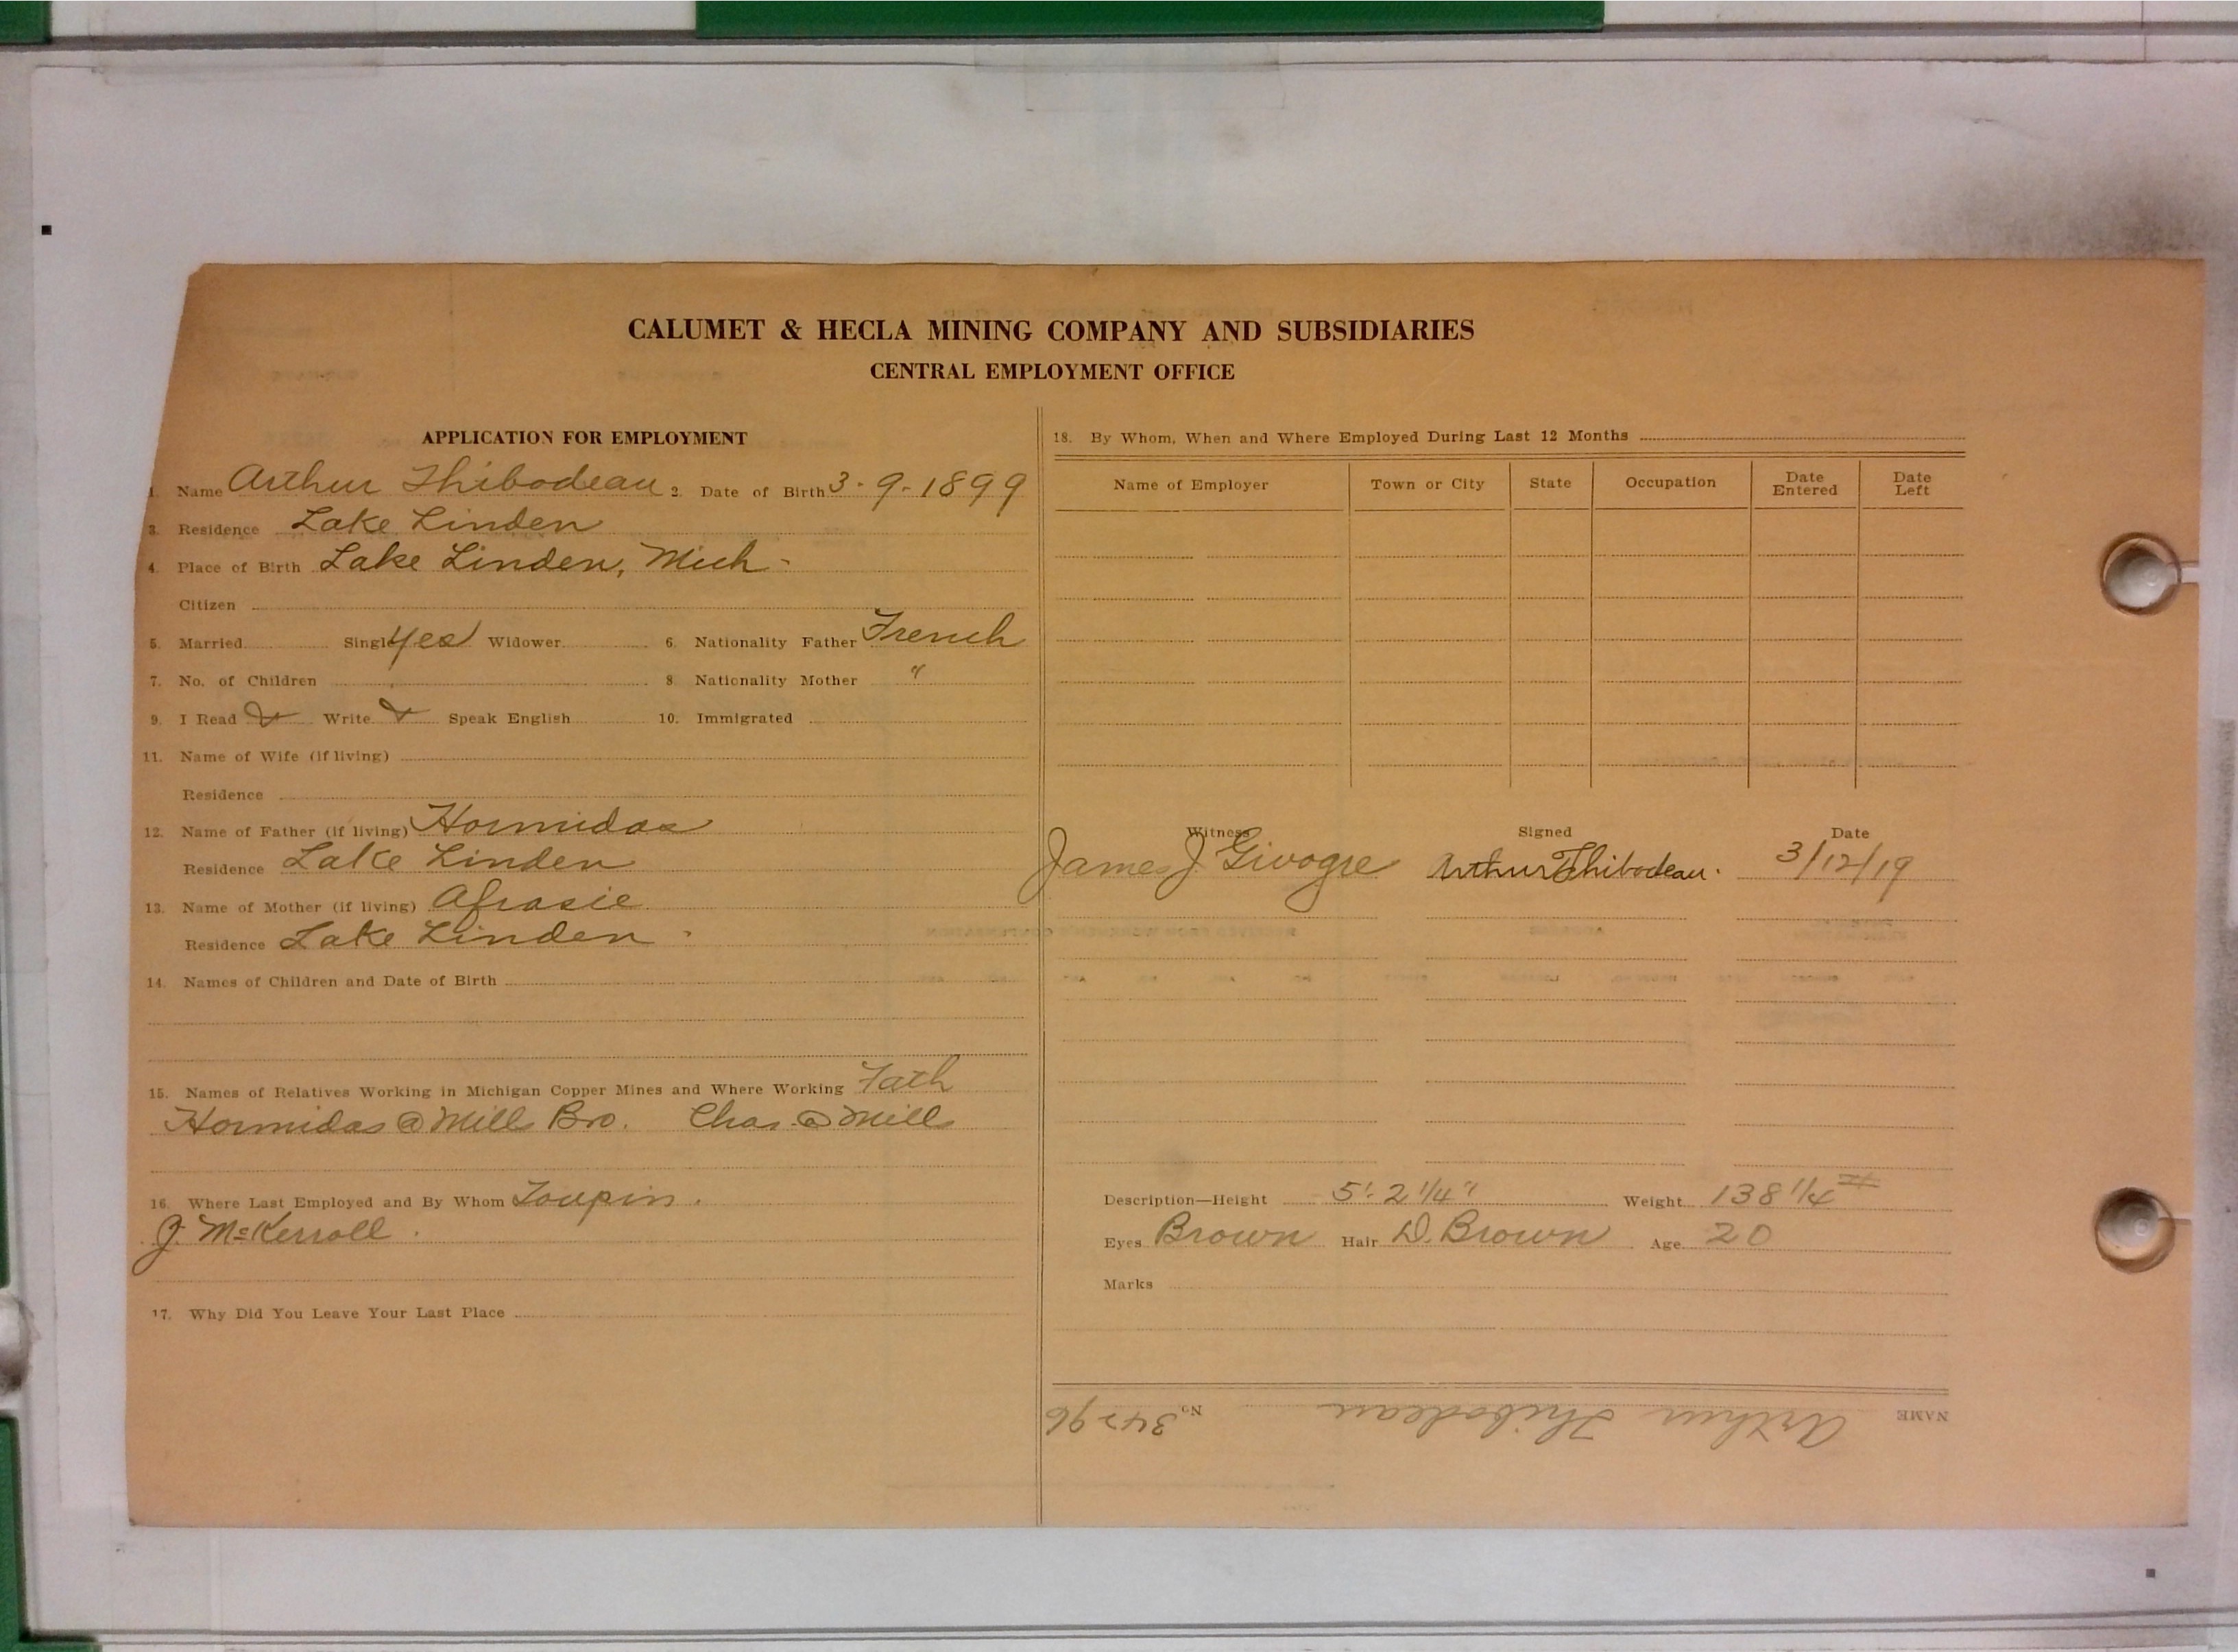 CALUMET & HECLA MINING COMPANY AND SUBSIDIARIES
CENTRAL EMPLOYMENT OFFICE
APPLICATION FOR EMPLOYMENT
1. Name Arthur Thibodeau 2. Date of Birth 3-9-1899
3. Residence Lake Linden
4. Place of Birth Lake Linden, Mich-
Citizen
5. Married Single yes Widower 6. Nationality Father French
7. No. of Children 8 Nationality Mother "
9. I Read Write Speak English 10. Immigrated
11. Name of Wife (if living)
Residence
12. Name of Father (if living) Hormidas
Residence Lake Linden
13. Name of Mother (if living) Afrasie
Residence Lake Linden
14. Names of Children and Date of Birth
15. Names of Relatives Working in Michigan Copper Mines and Where Working Fath
Hormidas @ Mills Bro. Chas. @ Mills
16. Where Last Employed and By Whom Toupin.
J. McKerroll.
17. Why Did You Leave Your Last Place
18. By Whom, When and Where Employed During Last 12 Months
Name of Employer Town or City State Occupation Date Entered Date Left
Witness Signed Date
James J. Givogre Arthur Thibodeau. 3/12/19
Description—Height 5'. 2 1/4" Weight 138 1/4 #
Eyes Brown Hair D. Brown Age 20
Marks
NAME Arthur Thibodeau No. 34296